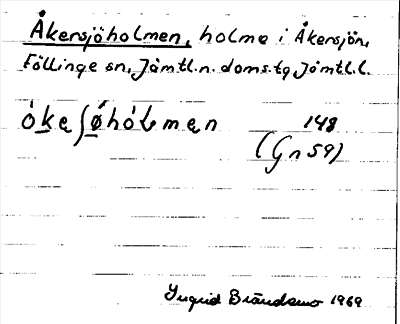 Åkersjöholmen, holme i Åkersjön,
Föllinge sn, Jämtl.n. doms.tg Jämtl.l.
148
(Gn 59)
Ingrid Brändsmo 1969